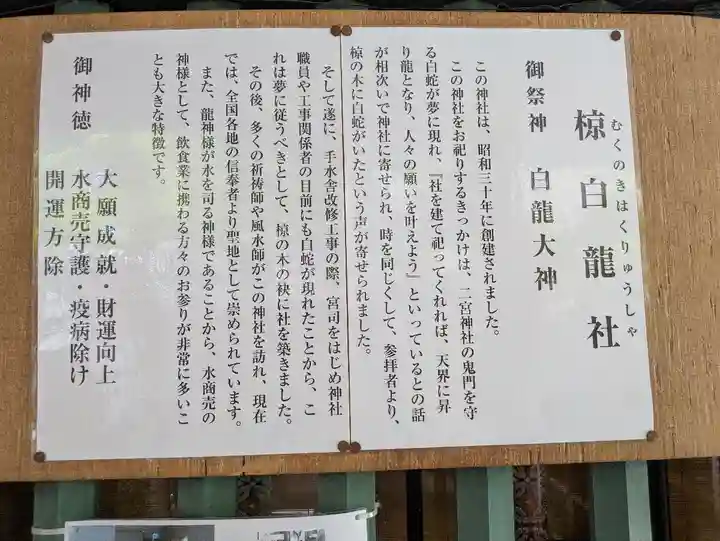 椋白龍社
むくのきはくりゅうしゃ
御祭神　白龍大神
この神社は、昭和三十年に創建されました。
この神社をお祀りするきっかけは、二宮神社の鬼門を守
る白蛇が夢に現れ、『社を建て祀ってくれれば、天界に昇
り龍となり、人々の願いを叶えよう』といっているとの話
が相次いで神社に寄せられ、時を同じくして、参拝者より、
椋の木に白蛇がいたという声が寄せられました。
そして遂に、手水舎改修工事の際、宮司をはじめ神社
職員や工事関係者の目前にも白蛇が現れたことから、こ
れは夢に従うべきとして、椋の木の袂に社を築きました。
その後、多くの祈祷師や風水師がこの神社を訪れ、現在
では、全国各地の信奉者より聖地として崇められています。
また、龍神様が水を司る神様であることから、水商売の
神様として、飲食業に携わる方々のお参りが非常に多いこ
とも大きな特徴です。
御神徳　大願成就・財運向上
水商売守護・疫病除け
開運方除